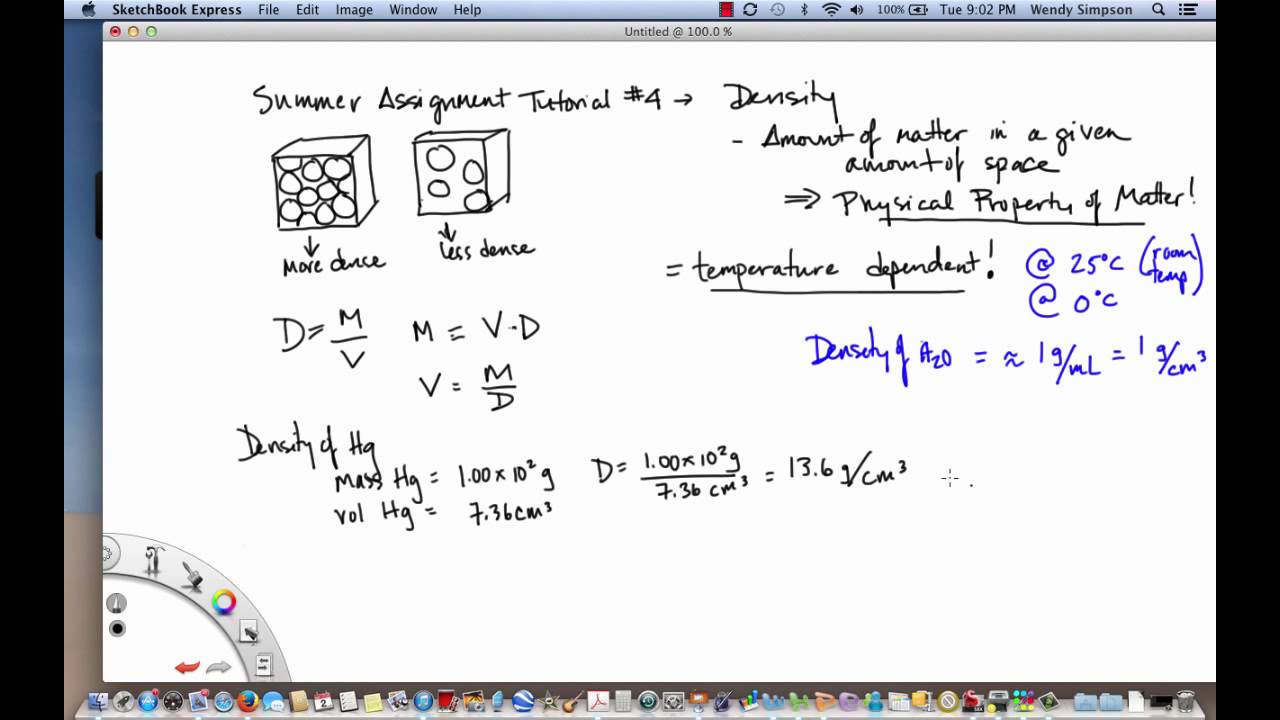 SketchBook Express File Edit Image Window Help 100% Tue 9:02 PM Wendy Simpson
Untitled @ 100.0 %
Summer Assignment Tutorial #4 → Density
- Amount of matter in a given
amount of space
⇒ Physical Property of Matter!
↓ More dense
↓ less dense
= temperature dependent!
@ 25°C (room temp)
@ 0°C
D = M/V
M = V·D
V = M/D
Density of H2O = ≈ 1 g/mL = 1 g/cm³
Density of Hg
mass Hg = 1.00 × 10² g
vol Hg = 7.36 cm³
D = 1.00 × 10² g / 7.36 cm³ = 13.6 g/cm³